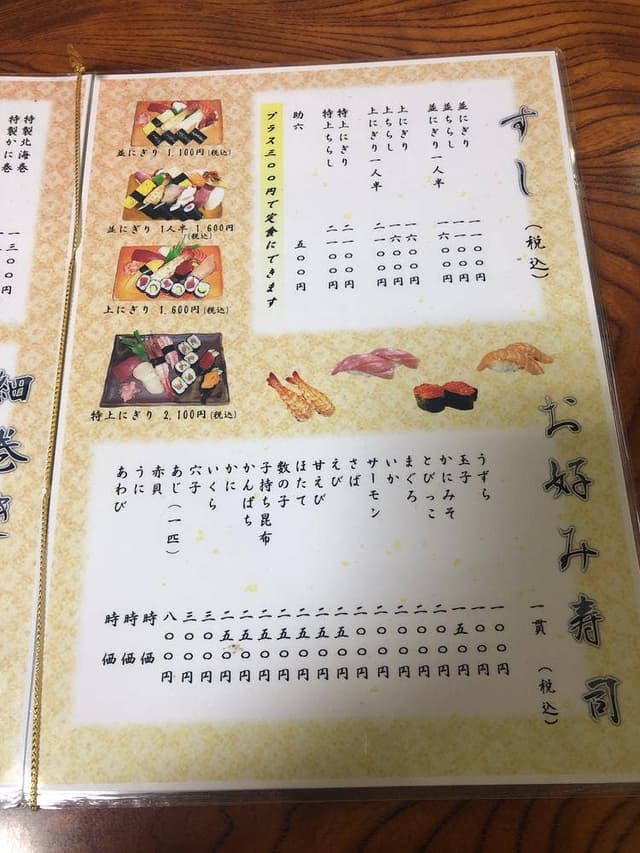 すし(税込)
並にぎり 一一〇〇円
並ちらし 一一〇〇円
並にぎり一人半 一六〇〇円
上にぎり 一六〇〇円
上ちらし 一六〇〇円
上にぎり一人半 二一〇〇円
特上にぎり 二一〇〇円
特上ちらし 二一〇〇円
助六 五〇〇円
プラス三〇〇円で定食にできます
並にぎり 1,100円(税込)
並にぎり 1人半 1,600円
(税込)
上にぎり 1,600円(税込)
特上にぎり 2,100円(税込)
お好み寿司
一貫 (税込)
うずら 一〇〇円
玉子 一〇〇円
かにみそ 一五〇円
とびっこ 二〇〇円
まぐろ 二〇〇円
いか 二〇〇円
サーモン 二〇〇円
さば 二〇〇円
えび 二五〇円
甘えび 二五〇円
ほたて 二五〇円
数の子 二五〇円
子持ち昆布 二五〇円
かんぱち 二五〇円
かに 二五〇円
いくら 三〇〇円
穴子 三〇〇円
あじ(一匹) 八〇〇円
赤貝 時価
うに 時価
あわび 時価
特製北海巻 一三〇〇円
特製かに巻
細巻き